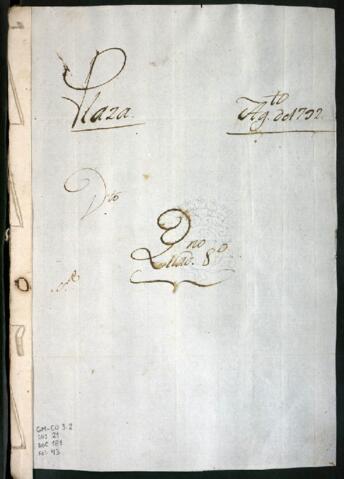 Plaza.
Ag.to de 1792.
D.to
Quad.no 8.o
GM-CO 3.2
CAJ 21
DOC 181
FOL 43